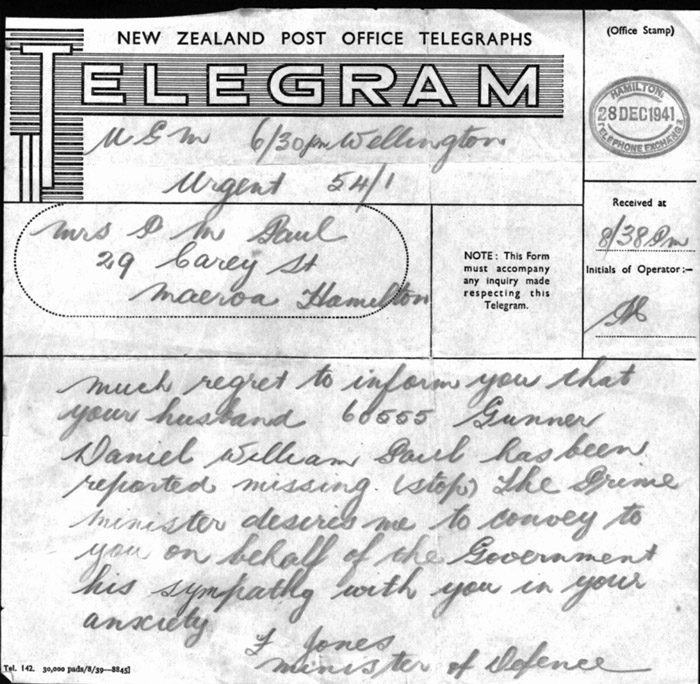 NEW ZEALAND POST OFFICE TELEGRAPHS
TELEGRAM
(Office Stamp)
HAMILTON.
28 DEC 1941
TELEPHONE EXCHANGE
M G M 6/30pm Wellington
Urgent 54/1
Mrs D M Paul
29 Carey St
Maeroa Hamilton
NOTE: This Form
must accompany
any inquiry made
respecting this
Telegram.
Received at
8/38 Pm
Initials of Operator:-
much regret to inform you that
your husband 60555 Gunner
Daniel William Paul has been
reported missing. (stop) The Prime
minister desires me to convey to
you on behalf of the Government
his sympathy with you in your
anxiety
F Jones
Minister of Defence
Tel. 142. 30,000 pads/8/39—8845]